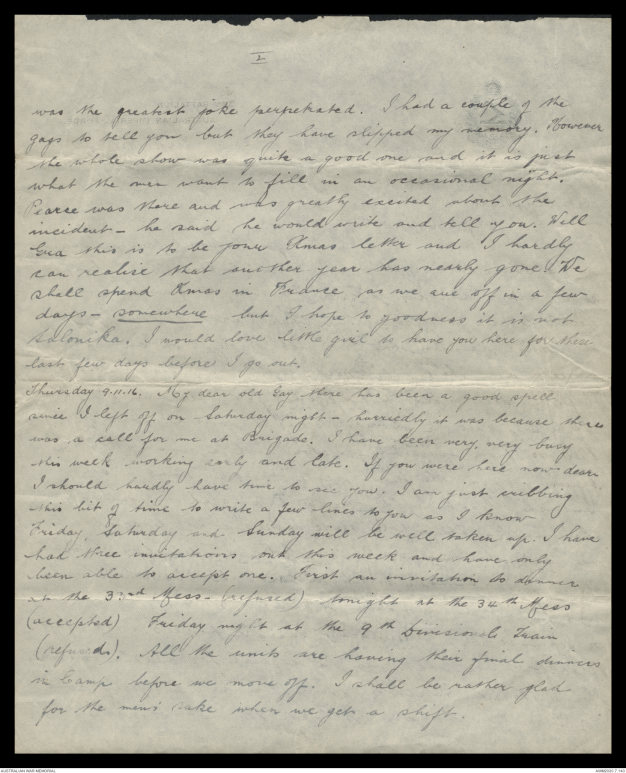 2
was the greatest joke perpetrated. I had a couple of the
gags to tell you but they have slipped my memory. However
the whole show was quite a good one and it is just
what the men want to fill in an occasional night.
Pearce was there and was greatly excited about the
incident – he said he would write and tell you. Well
this is to be your Xmas letter and I hardly
can realise that another year has nearly gone. We
shall spend Xmas in France as we are off in a few
days – somewhere but I hope to goodness it is not
Salonika. I would love little girl to have you here for these
last few days before I go out.
Thursday 9.11.16. My dear old Gay there has been a good spell
since I left off on Saturday night – hurriedly it was because there
was a call for me at Brigade. I have been very, very busy
this week working early and late. If you were here now dear
I should hardly have time to see you. I am just cribbing
this bit of time to write a few lines to you as I know
Friday, Saturday and Sunday will be well taken up. I have
had three invitations out this week and have only
been able to accept one. First an invitation to dinner
at the 33rd Mess – (refused) tonight at the 34th Mess
(accepted) Friday night at the 9th Divisional Train
(refused). All the units are having their final dinners
in Camp before we move off. I shall be rather glad
for the men's sake when we get a shift.
AUSTRALIAN WAR MEMORIAL